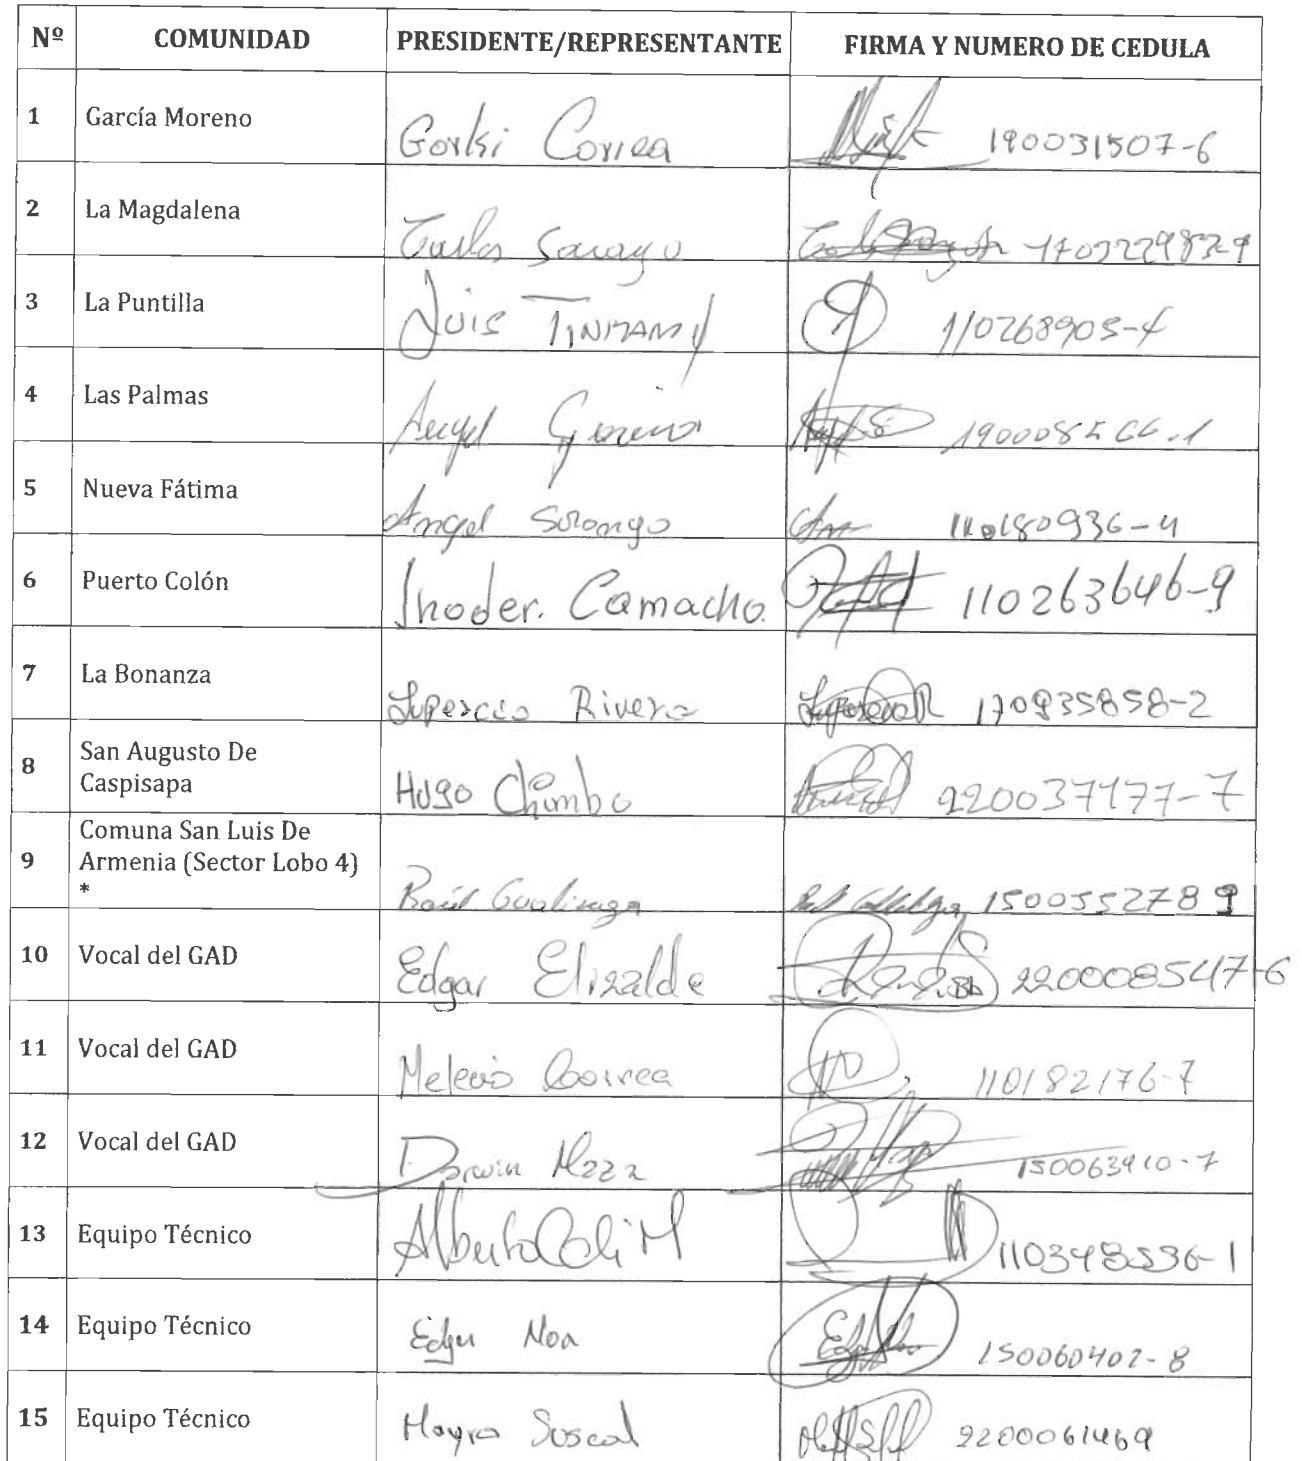 Nº COMUNIDAD PRESIDENTE/REPRESENTANTE FIRMA Y NUMERO DE CEDULA
1 García Moreno Gorki Correa 190031507-6
2 La Magdalena Carlos Sarayu 170322983-9
3 La Puntilla Luis TINITANA 110268905-4
4 Las Palmas Angel 
5 Nueva Fátima Angel Sorongo 110180936-4
6 Puerto Colón Inoder. Camacho. 110263646-9
7 La Bonanza Lupercio Rivera 170935858-2
8 San Augusto De
Caspisapa Hugo Chimbo 220037177-7
9 Comuna San Luis De
Armenia (Sector Lobo 4)
* Raúl Gualinga 1500552789
10 Vocal del GAD Edgar Elizalde 220008547-6
11 Vocal del GAD Melecio Correa 110182176-7
12 Vocal del GAD Darwin Maza 150063910-7
13 Equipo Técnico Alberto Celi M 110348536-1
14 Equipo Técnico Edgar Noa 150060402-8
15 Equipo Técnico Mayra Suscal 2200061469